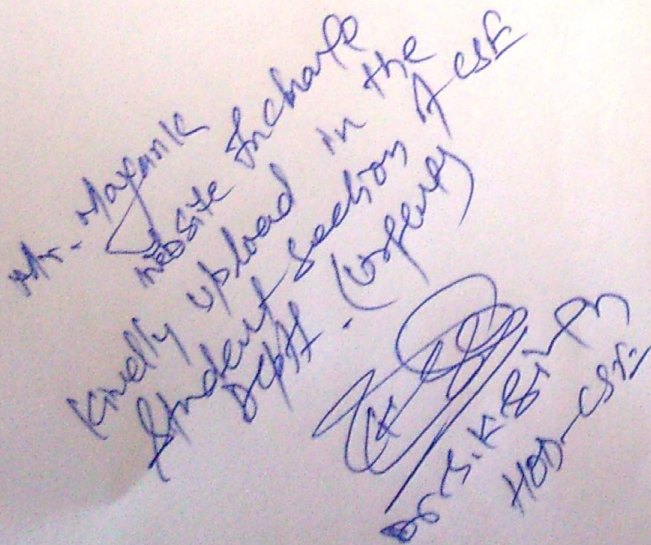 Mr. Mayank
Website Incharge
Kindly upload in the
Student section of CSE
Deptt. (Urgent)
Dr. S.K Singh
HOD-CSE